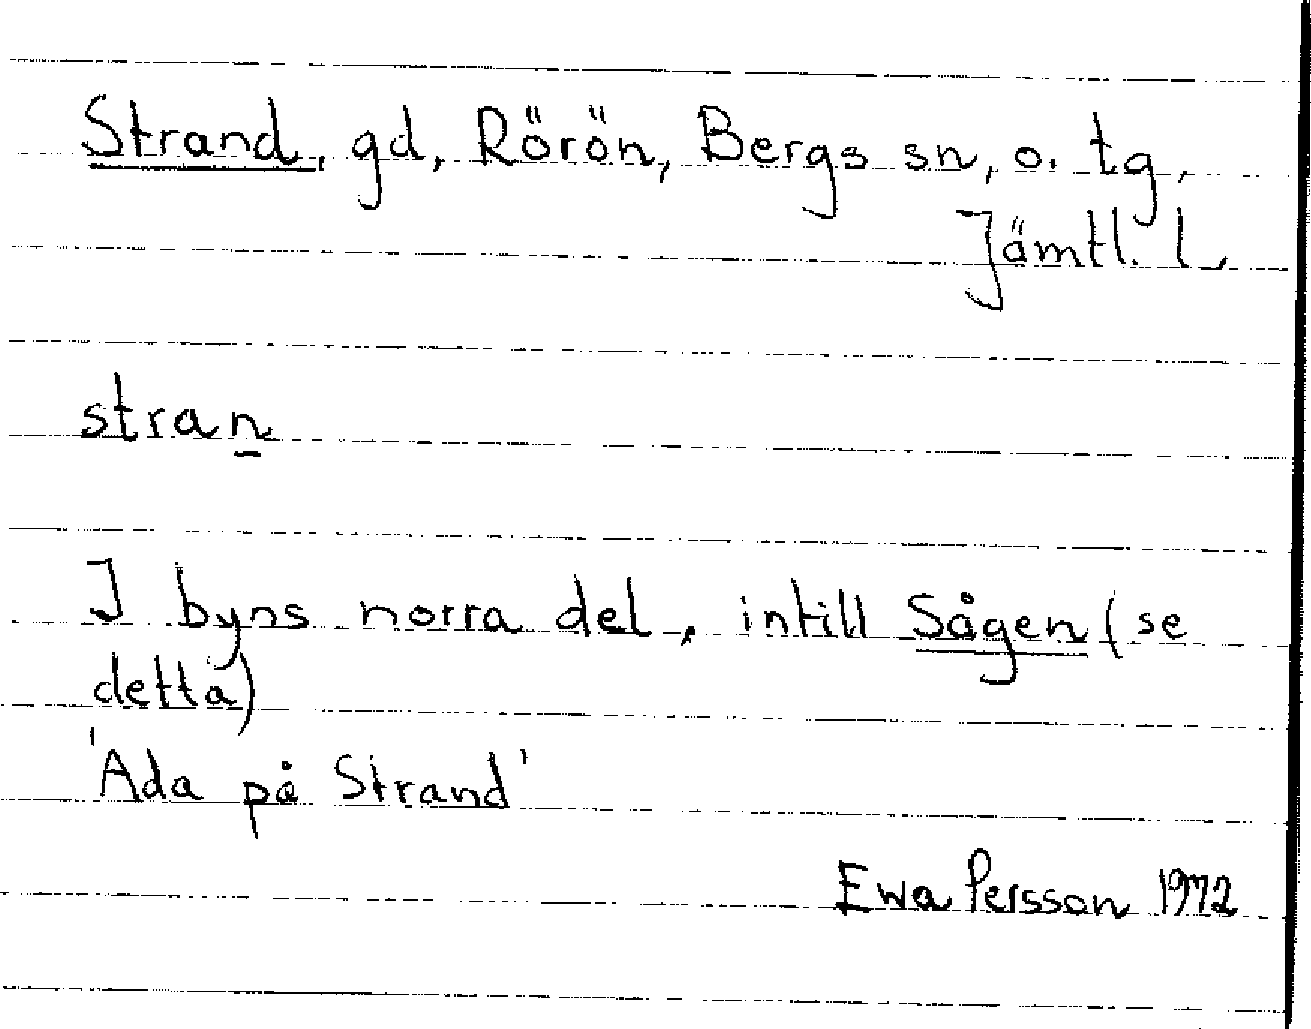 Strand, gd, Rörön, Bergs sn, o. tg,
Jämtl. l.
stran
I byns norra del, intill Sågen (se
detta)
'Ada på Strand'
Ewa Persson 1972